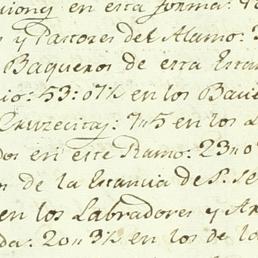 iones en esta forma:
s y Pastores del Alamo:
Baqueros de esta Estan
io: 53:07½ en los Bacie
Cruzecitas: 7n5 en los L
dos en este Ramo: 23n0
s de la Estancia de S. Se
en los Labradores y Ar
da: 20n3½ en los de lo